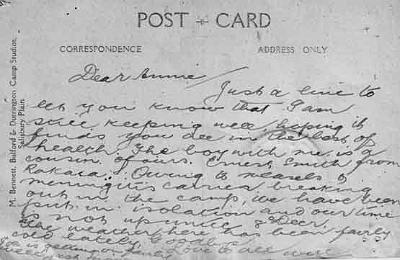 POST CARD
CORRESPONDENCE ADDRESS ONLY
M. Bennett, Bulford & Durrington Camp Studios,
Salisbury Plain.
Dear Annie
Just a line to
let you know that I am
still keeping well hoping it
finds you all in the best of
health. The boy with me is a
cousin of ours. Ernest Smith from
Kakaia. Owing to measels &
meningitis carries breaking
out in the camp we have been
put in isolation and our time
is not up until
The weather here has been fairly
cold lately. Goodbye
Love to all